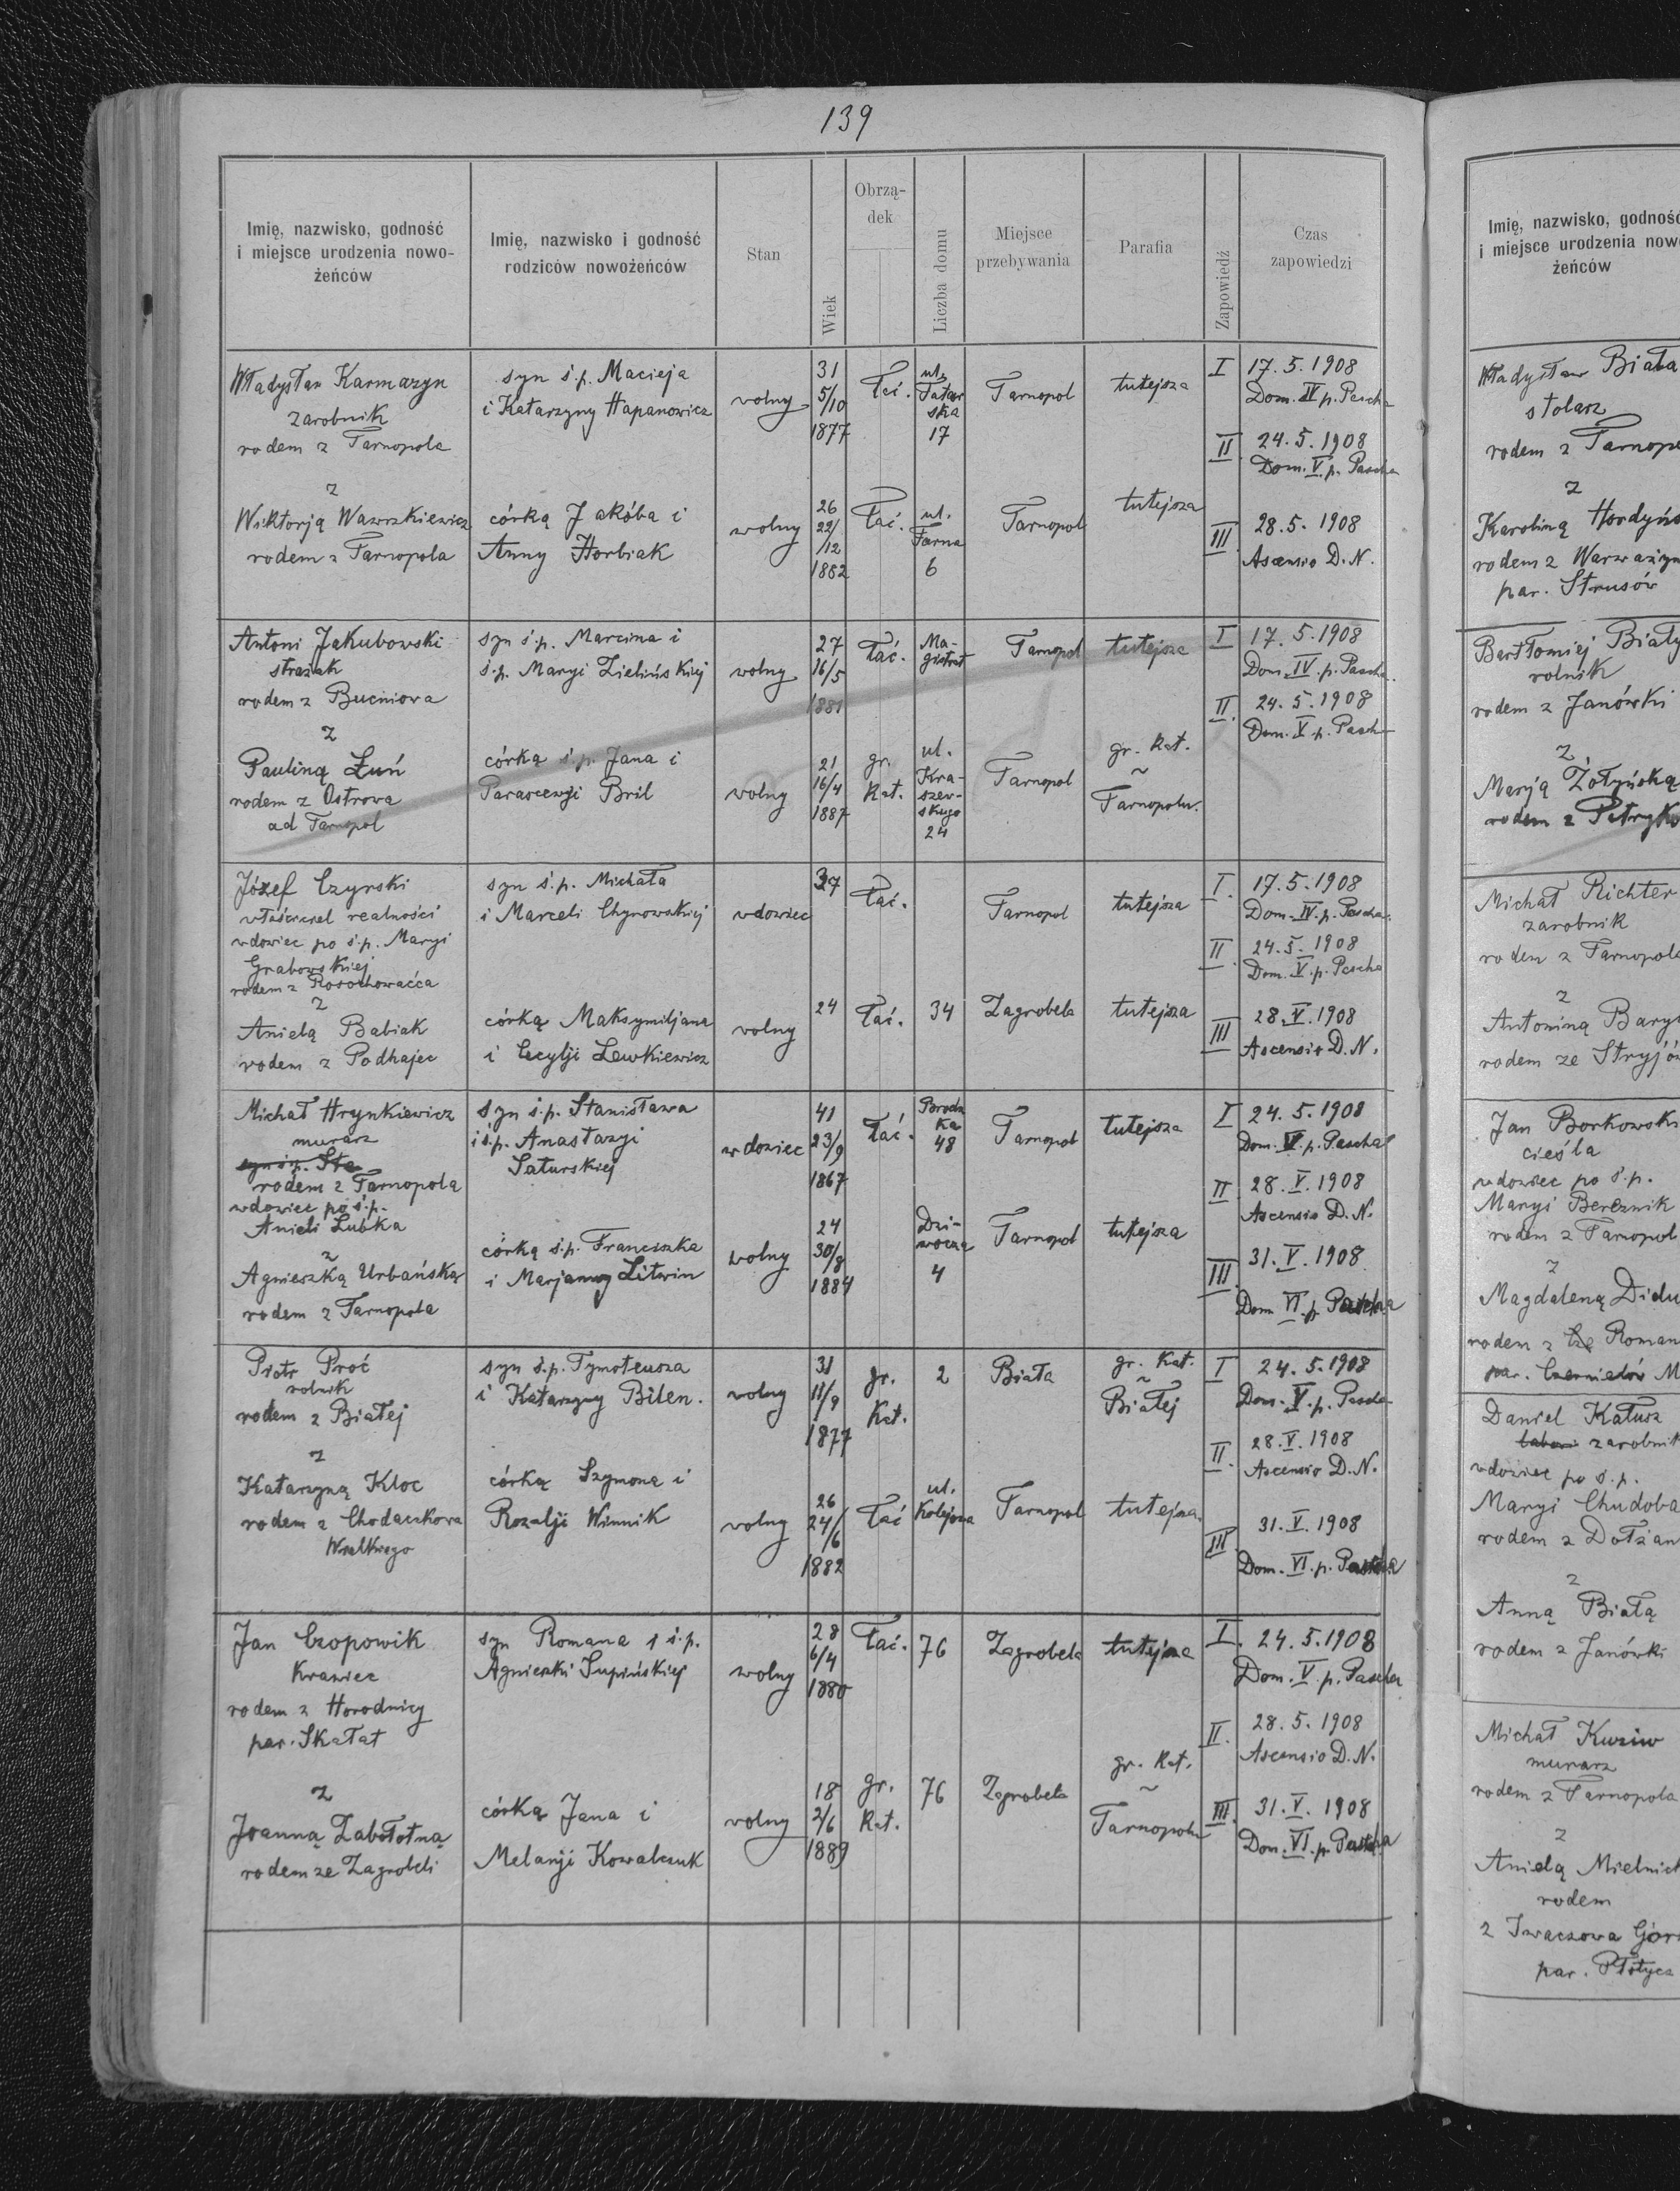 139
Imię, nazwisko, godność
i miejsce urodzenia nowo-
żeńców
Imię, nazwisko i godność
rodziców nowożeńców
Stan
Wiek
Obrzą-
dek
Liczba domu
Miejsce
przebywania
Parafia
Zapowiedź
Czas
zapowiedzi
Władysław Karmazyn
zarobnik
rodem z Tarnopola
z
Wiktorją Wawrzkiewicz
rodem z Tarnopola
syn ś.p. Macieja
i Katarzyny Hapanowicz
córką Jakóba i
Anny Horbiak
wolny
wolny
31
5/10
1877
26
22/
/12
1882
łać.
łać.
ul.
Tatar
ska
17
ul.
Farna
6
Tarnopol
Tarnopol
tutejsza
tutejsza
I 17.5.1908
Dom. IV p. Pascha
II 24.5.1908
Dom. V. p. Pascha
III 28.5.1908
Ascensio D.N.
Antoni Jakubowski
strażak
rodem z Bucniova
z
Pauliną Łuń
rodem z Ostrova
ad Tarnopol
syn ś.p. Marcina i
ś.p. Maryi Zielińskiej
córką ś.p. Jana i
Parascewji Bril
wolny
wolny
27
16/5
1881
21
16/4
1887
łać.
gr.
kat.
Ma-
gistrat
ul.
Kra-
szew-
skiego
24
Tarnopol
Tarnopol
tutejsza
gr. kat.
~
Tarnopolu.
I 17.5.1908
Dom. IV. p. Pascha
II. 24.5.1908
Dom. V. p. Pasch
Józef Czyrski
właściciel realności
wdowiec po ś.p. Maryi
Grabowskiej
rodem z Rosochowaćca
z
Anielą Babiak
rodem z Podhajec
syn ś.p. Michała
i Marceli Chyrowskiej
córką Maksymiljana
i Cecylji Lewkiewicz
wdowiec
wolny
37
24
łać.
łać.
34
Tarnopol
Zagrobela
tutejsza
tutejsza
I. 17.5.1908
Dom. IV. p. Pascha
II. 24.5.1908
Dom. V. p. Pascha
III 28.V.1908
Ascensio D.N.
Michał Hrynkiewicz
murarz
syn ś.p. Sta
rodem z Tarnopola
wdowiec po ś.p.
Anieli Lubka
z
Agnieszką Urbańską
rodem z Tarnopola
syn ś.p. Stanisława
i ś.p. Anastazyi
Saturskiej
córką ś.p. Franciszka
i Marjanny Litwin
wdowiec
wolny
41
23/9
1867
24
30/8
1884
łać.
48
4
Tarnopol
Tarnopol
tutejsza
tutejsza
I 24.5.1908
Dom. V. p. Pascha
II 28.V.1908
Ascensio D.N.
III. 31.V.1908
Dom VI. p. Pascha
Piotr Proć
rolnik
rodem z Białej
z
Katarzyną Kloc
rodem z Chodaczkova
Wielkiego
syn ś.p. Tymoteusza
i Katarzyny Bilen.
córką Szymona i
Rozalji Winnik
wolny
wolny
31
11/9
1877
26
24/
/6
1882
gr.
kat.
łać
2
ul.
Kolejova
Biała
Tarnopol
gr. kat.
~
Białej
tutejsza.
I 24.5.1908
Dom. V. p. Pascha
II. 28.V.1908
Ascensio D.N.
III 31.V.1908
Dom. VI. p. Pascha
Jan Czopowik
Krawiec
rodem z Horodnicy
par. Skałat
z
Joanną Zabołotną
rodem ze Zagrobeli
syn Romana i ś.p.
Agnieszki Supińskiej
córką Jana i
Melanji Kowalczuk
wolny
wolny
28
6/4
1880
18
2/6
1889
łać.
gr.
kat.
76
76
Zagrobela
Zagrobela
tutejsza
gr. kat.
~
Tarnopolu
I. 24.5.1908
Dom. V. p. Pascha
II. 28.5.1908
Ascensio D.N.
III. 31.V.1908
Dom. VI. p. Pascha
Imię, nazwisko, godność
i miejsce urodzenia nowo
żeńców
Władysław Biała
stolarz
rodem z Tarnopo
z
Karoliną Hordyńs
rodem z
par. Strusów
Bartłomiej Biały
rolnik
rodem z Janówki
z
Marją Żołyńską
rodem z Petryko
Michał Richter
zarobnik
rodem z Tarnopola
z
Antoniną Barys
rodem ze Stryjó
Jan Borkowski
cieśla
wdowiec po ś.p.
Maryi Bereznik
rodem z Tarnopol
z
Magdaleną Didu
rodem z Roman
par. Czernielów M
Daniel Kałusz
zarobnik
wdowiec po ś.p.
Maryi Chudoba
rodem z Dołżan
z
Anną Białą
rodem z Janówki
Michał Kuziw
murarz
rodem z Tarnopola
z
Anielą Mielnick
rodem
z Iwaczowa Górn
par. Płotycz